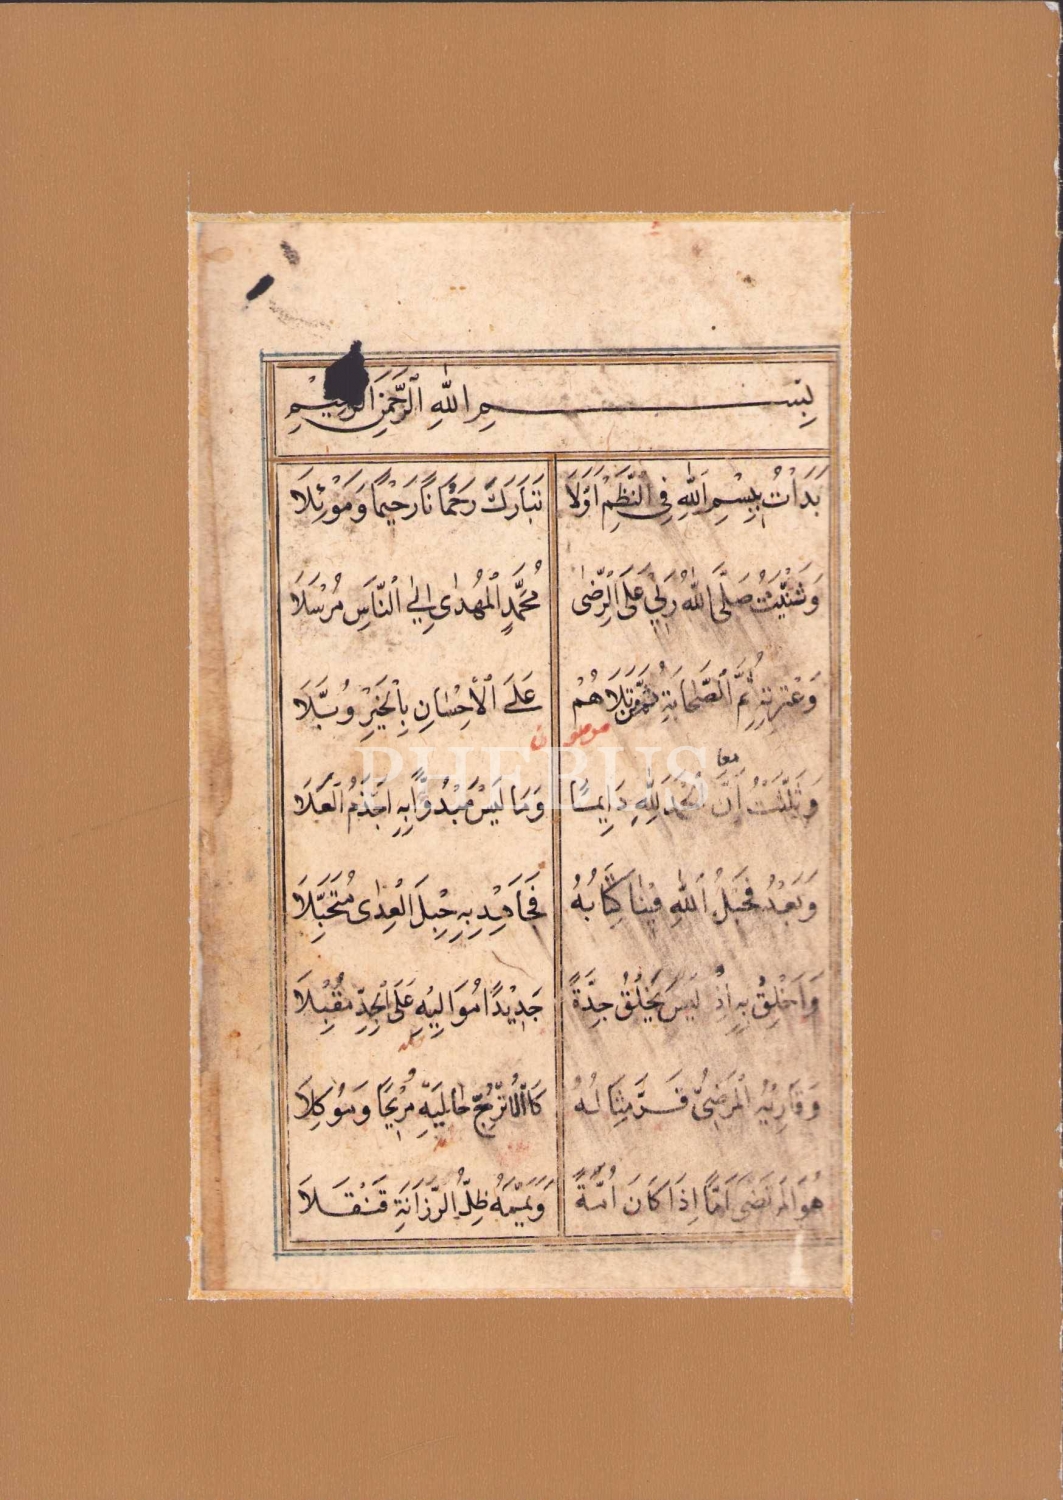 بِسْمِ اللّٰهِ الرَّحْمٰنِ الرَّحِيْمِ
بَدَأْتُ بِبِسْمِ اللّٰهِ فِي النَّظْمِ اَوَّلَا تَبَارَكَ رَحْمَانًا رَحِيْمًا وَمَوْئِلَا
وَثَنَّيْتُ صَلَّى اللّٰهُ رَبِّي عَلَى الرِّضٰى مُحَمَّدٍ الْمُهْدٰى اِلَى النَّاسِ مُرْسَلَا
وَعِتْرَتِهِ ثُمَّ الصَّحَابَةِ ثُمَّ مَنْ تَلَاهُمْ عَلَى الْاِحْسَانِ بِالْخَيْرِ وُبَّلَا
معا
وَثَلَّثْتُ اَنَّ الْحَمْدَ لِلّٰهِ دَايِمًا وَمَا لَيْسَ مَبْدُوًّا بِهِ اَجْذَمُ الْعَلَا
PHEBUS
وَبَعْدُ فَحَبْلُ اللّٰهِ فِيْنَا كِتَابُهُ فَجَاهِدْ بِهِ حِبْلَ الْعِدٰى مُتَحَبِّلَا
وَاَخْلِقْ بِهِ اِذْ لَيْسَ يَخْلُقُ جِدَّةً جَدِيْدًا مُوَالِيْهِ عَلَى الْجِدِّ مُقْبِلَا
وَقَارِئُهُ الْمَرْضِيُّ قَرَّ مِثَالُهُ كَالْاُتْرُجِّ حَالَيْهِ مُرِيْحًا وَمُوْكِلَا
هُوَ الْمُرْتَضٰى اَمًّا اِذَا كَانَ اُمَّةً وَيَمَّمَهُ ظِلُّ الرَّزَانَةِ قَنْقَلَا